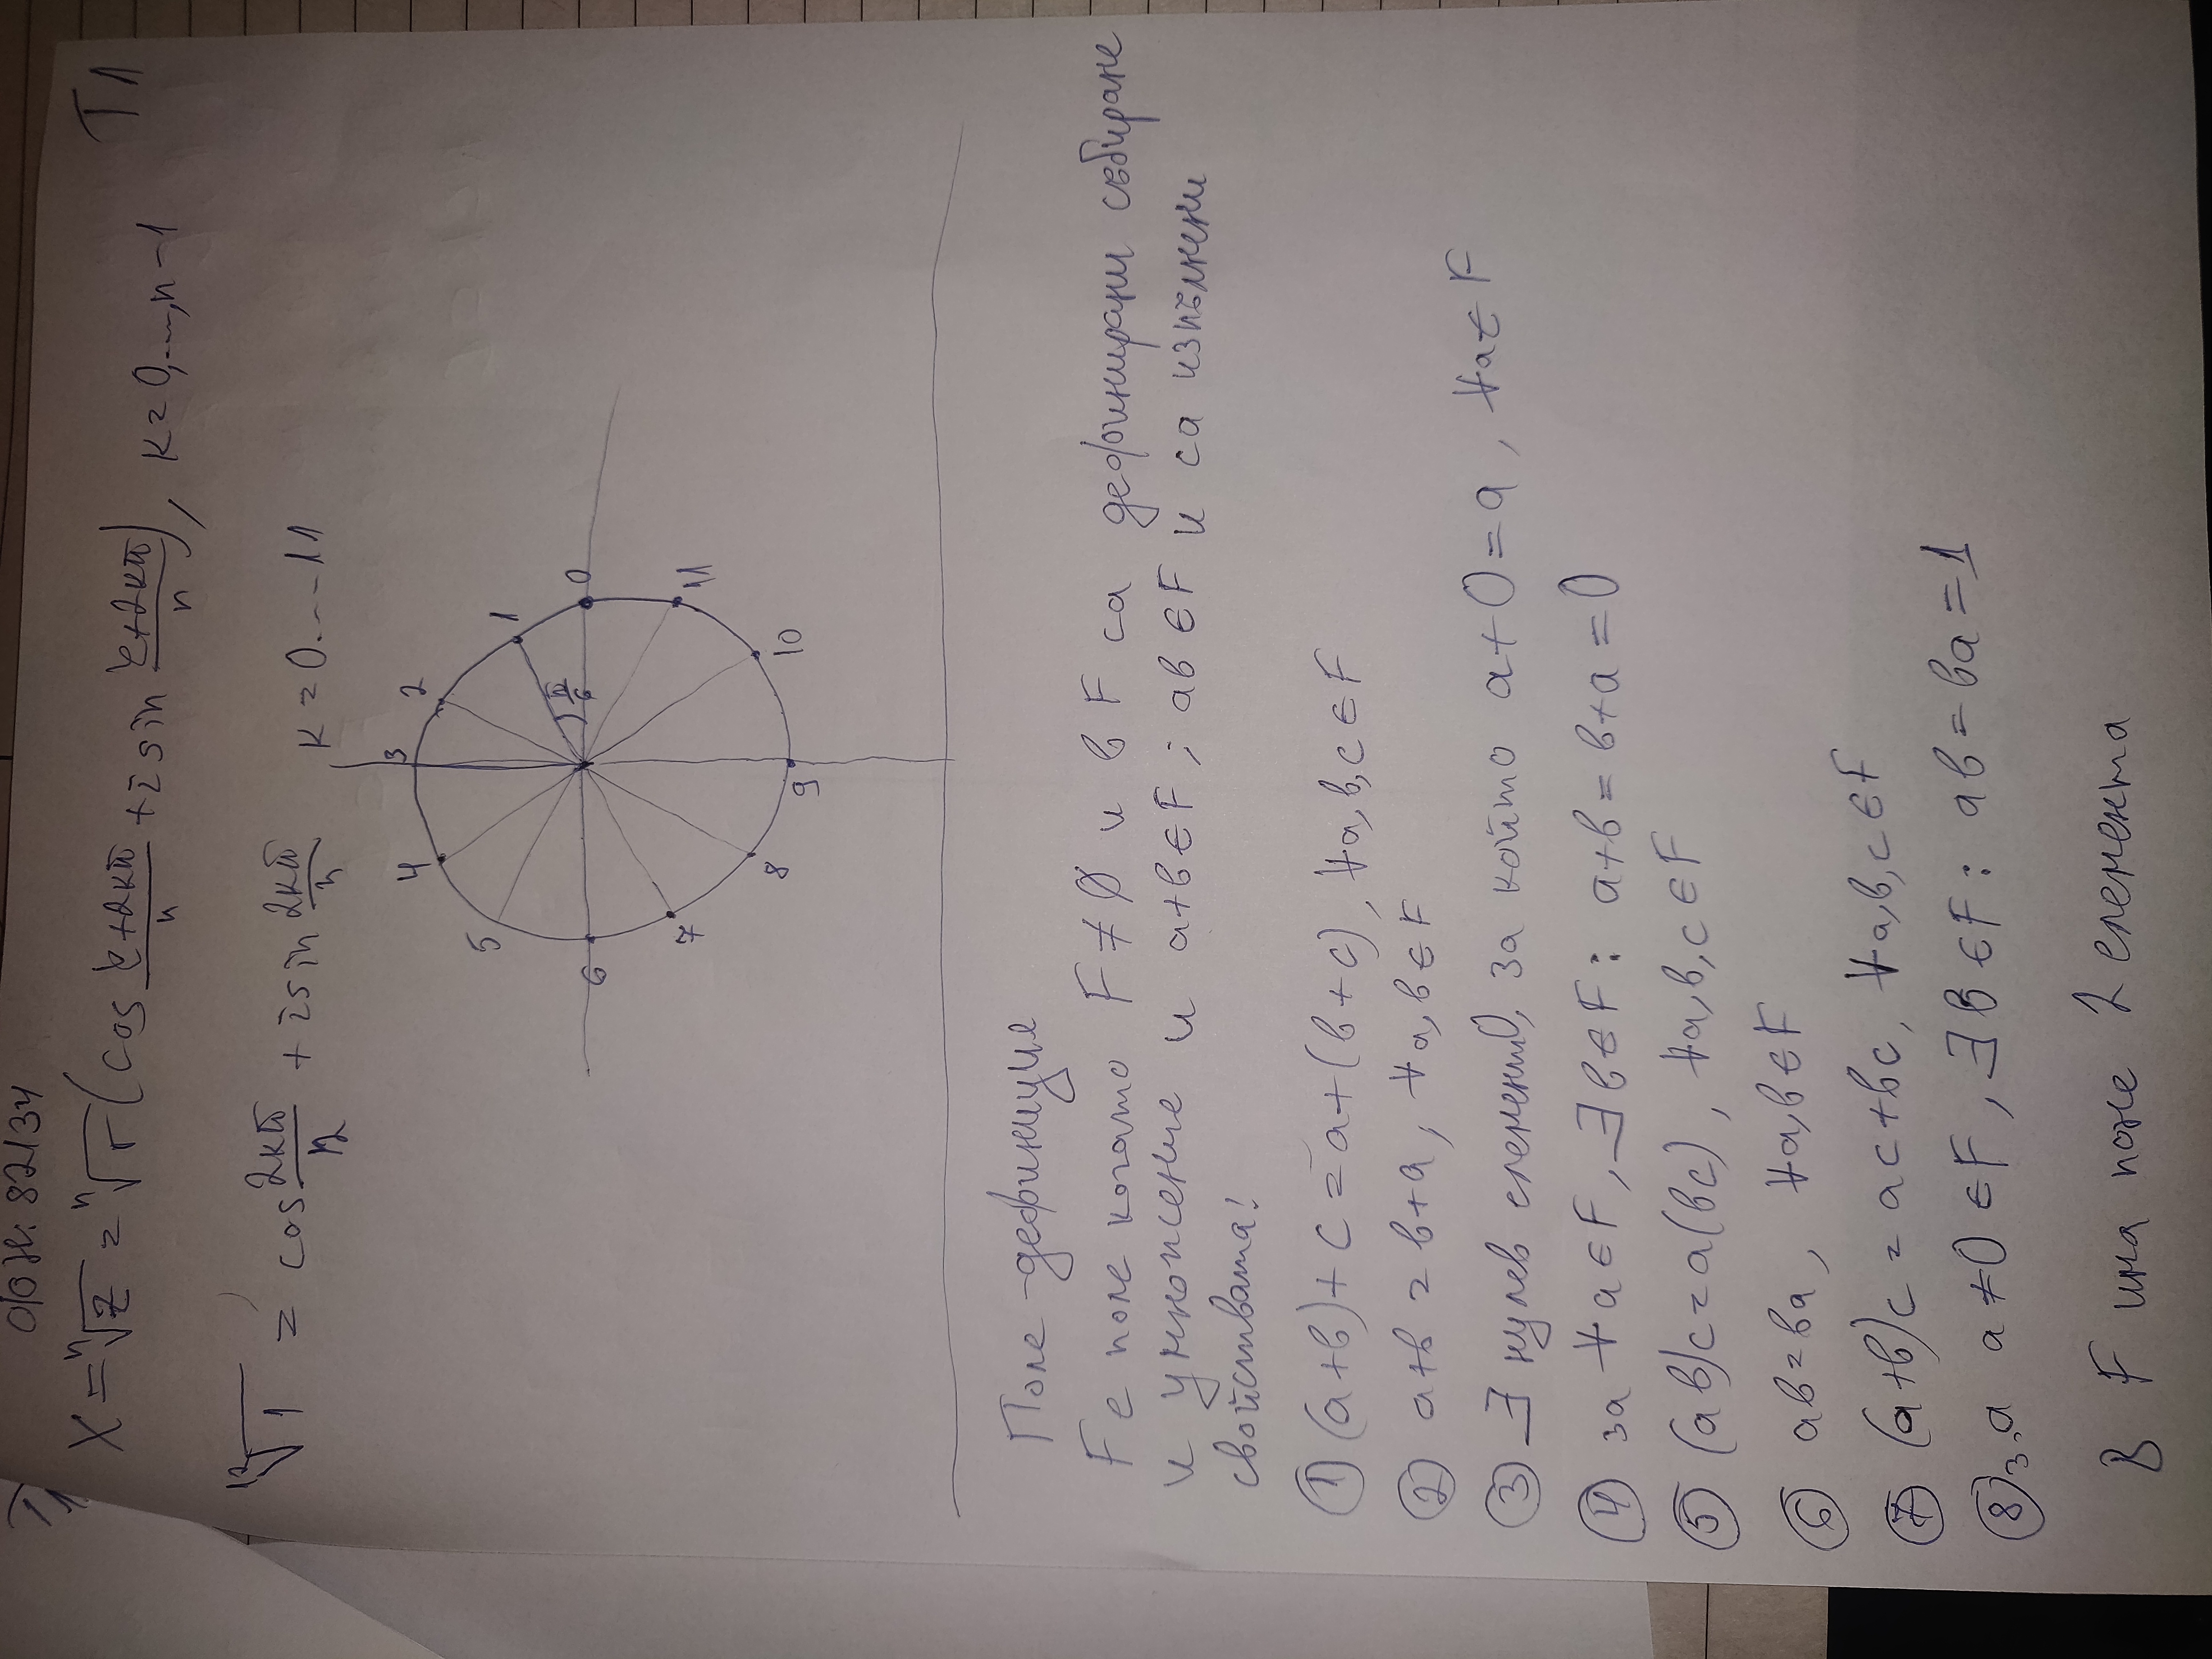 ф.н: 82134
T1
X = ⁿ√z = ⁿ√r (cos (φ+2kπ)/n + i sin (φ+2kπ)/n), k = 0,...,n-1
¹²√1 = cos 2kπ/12 + i sin 2kπ/n k = 0...11
3
4 2
5 1
π/6
6 0
7 11
8 10
9
Поле - дефиниция
F е поле когато F ≠ ∅ и в F са дефинирани събиране
и умножение и a+b ∈ F ; ab ∈ F и са изпълнени
свойствата!
① (a+b)+c = a+(b+c), ∀a,b,c ∈ F
② a+b = b+a, ∀a,b ∈ F
③ ∃ нулев елемент 0, за който a+0=a, ∀a ∈ F
④ за ∀a ∈ F, ∃b ∈ F: a+b = b+a = 0
⑤ (ab)c = a(bc), ∀a,b,c ∈ F
⑥ ab = ba, ∀a,b ∈ F
⑦ (a+b)c = ac+bc, ∀a,b,c ∈ F
⑧ за a ≠ 0 ∈ F, ∃b ∈ F: ab = ba = 1
В F има поне 2 елемента